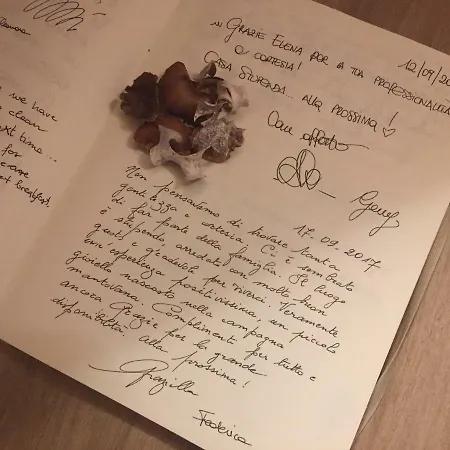 we have
clean
next time...
for
care
breakfast.
Grazie Elena per la tua professionalità
12/09/20
di cortesia!
Casa stupenda... alla prossima!
Con affetto
17.09.2017
Non pensavamo di trovare tanta
gentilezza e cortesia. Ci è sembrato
di far parte della famiglia. Il luogo
è stupendo, arredato con molto buon
gusto e gradevole per viverci. Veramente
un'esperienza positivissima, un piccolo
gioiello nascosto nella campagna
mantovana. Complimenti per tutto e
ancora Grazie per la grande
disponibilità. Alla prossima!
Graziella
Federica